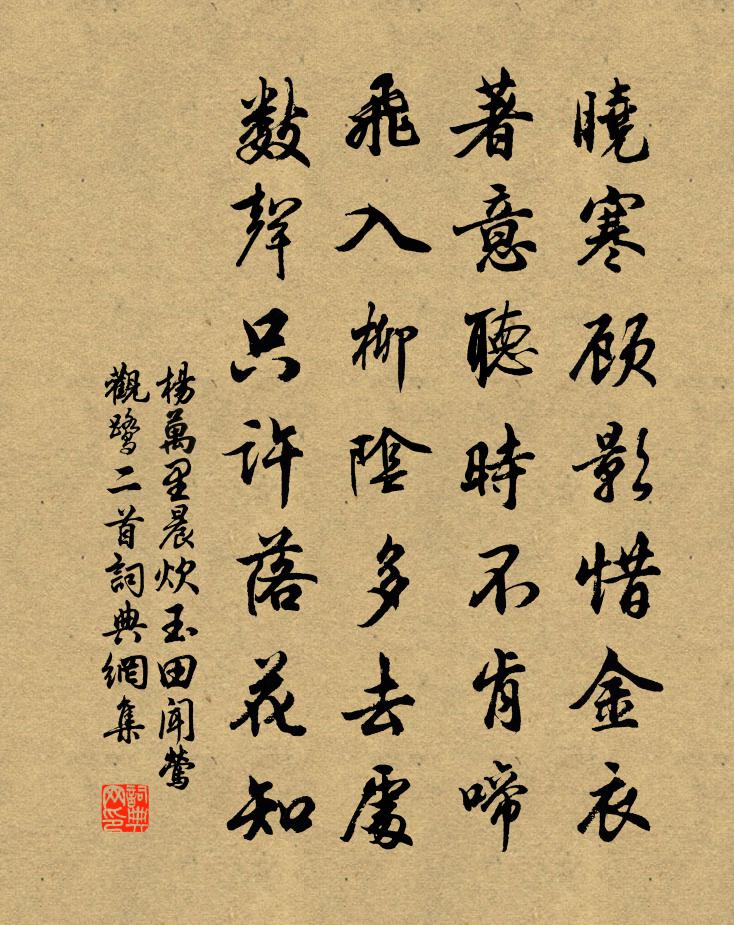 曉寒顧影惜金衣
著意聽時不肯啼
飛入柳陰多去處
數聲只許落花知
楊萬里晨炊玉田聞鶯
觀鷺二首詞典網集
詞典
网印